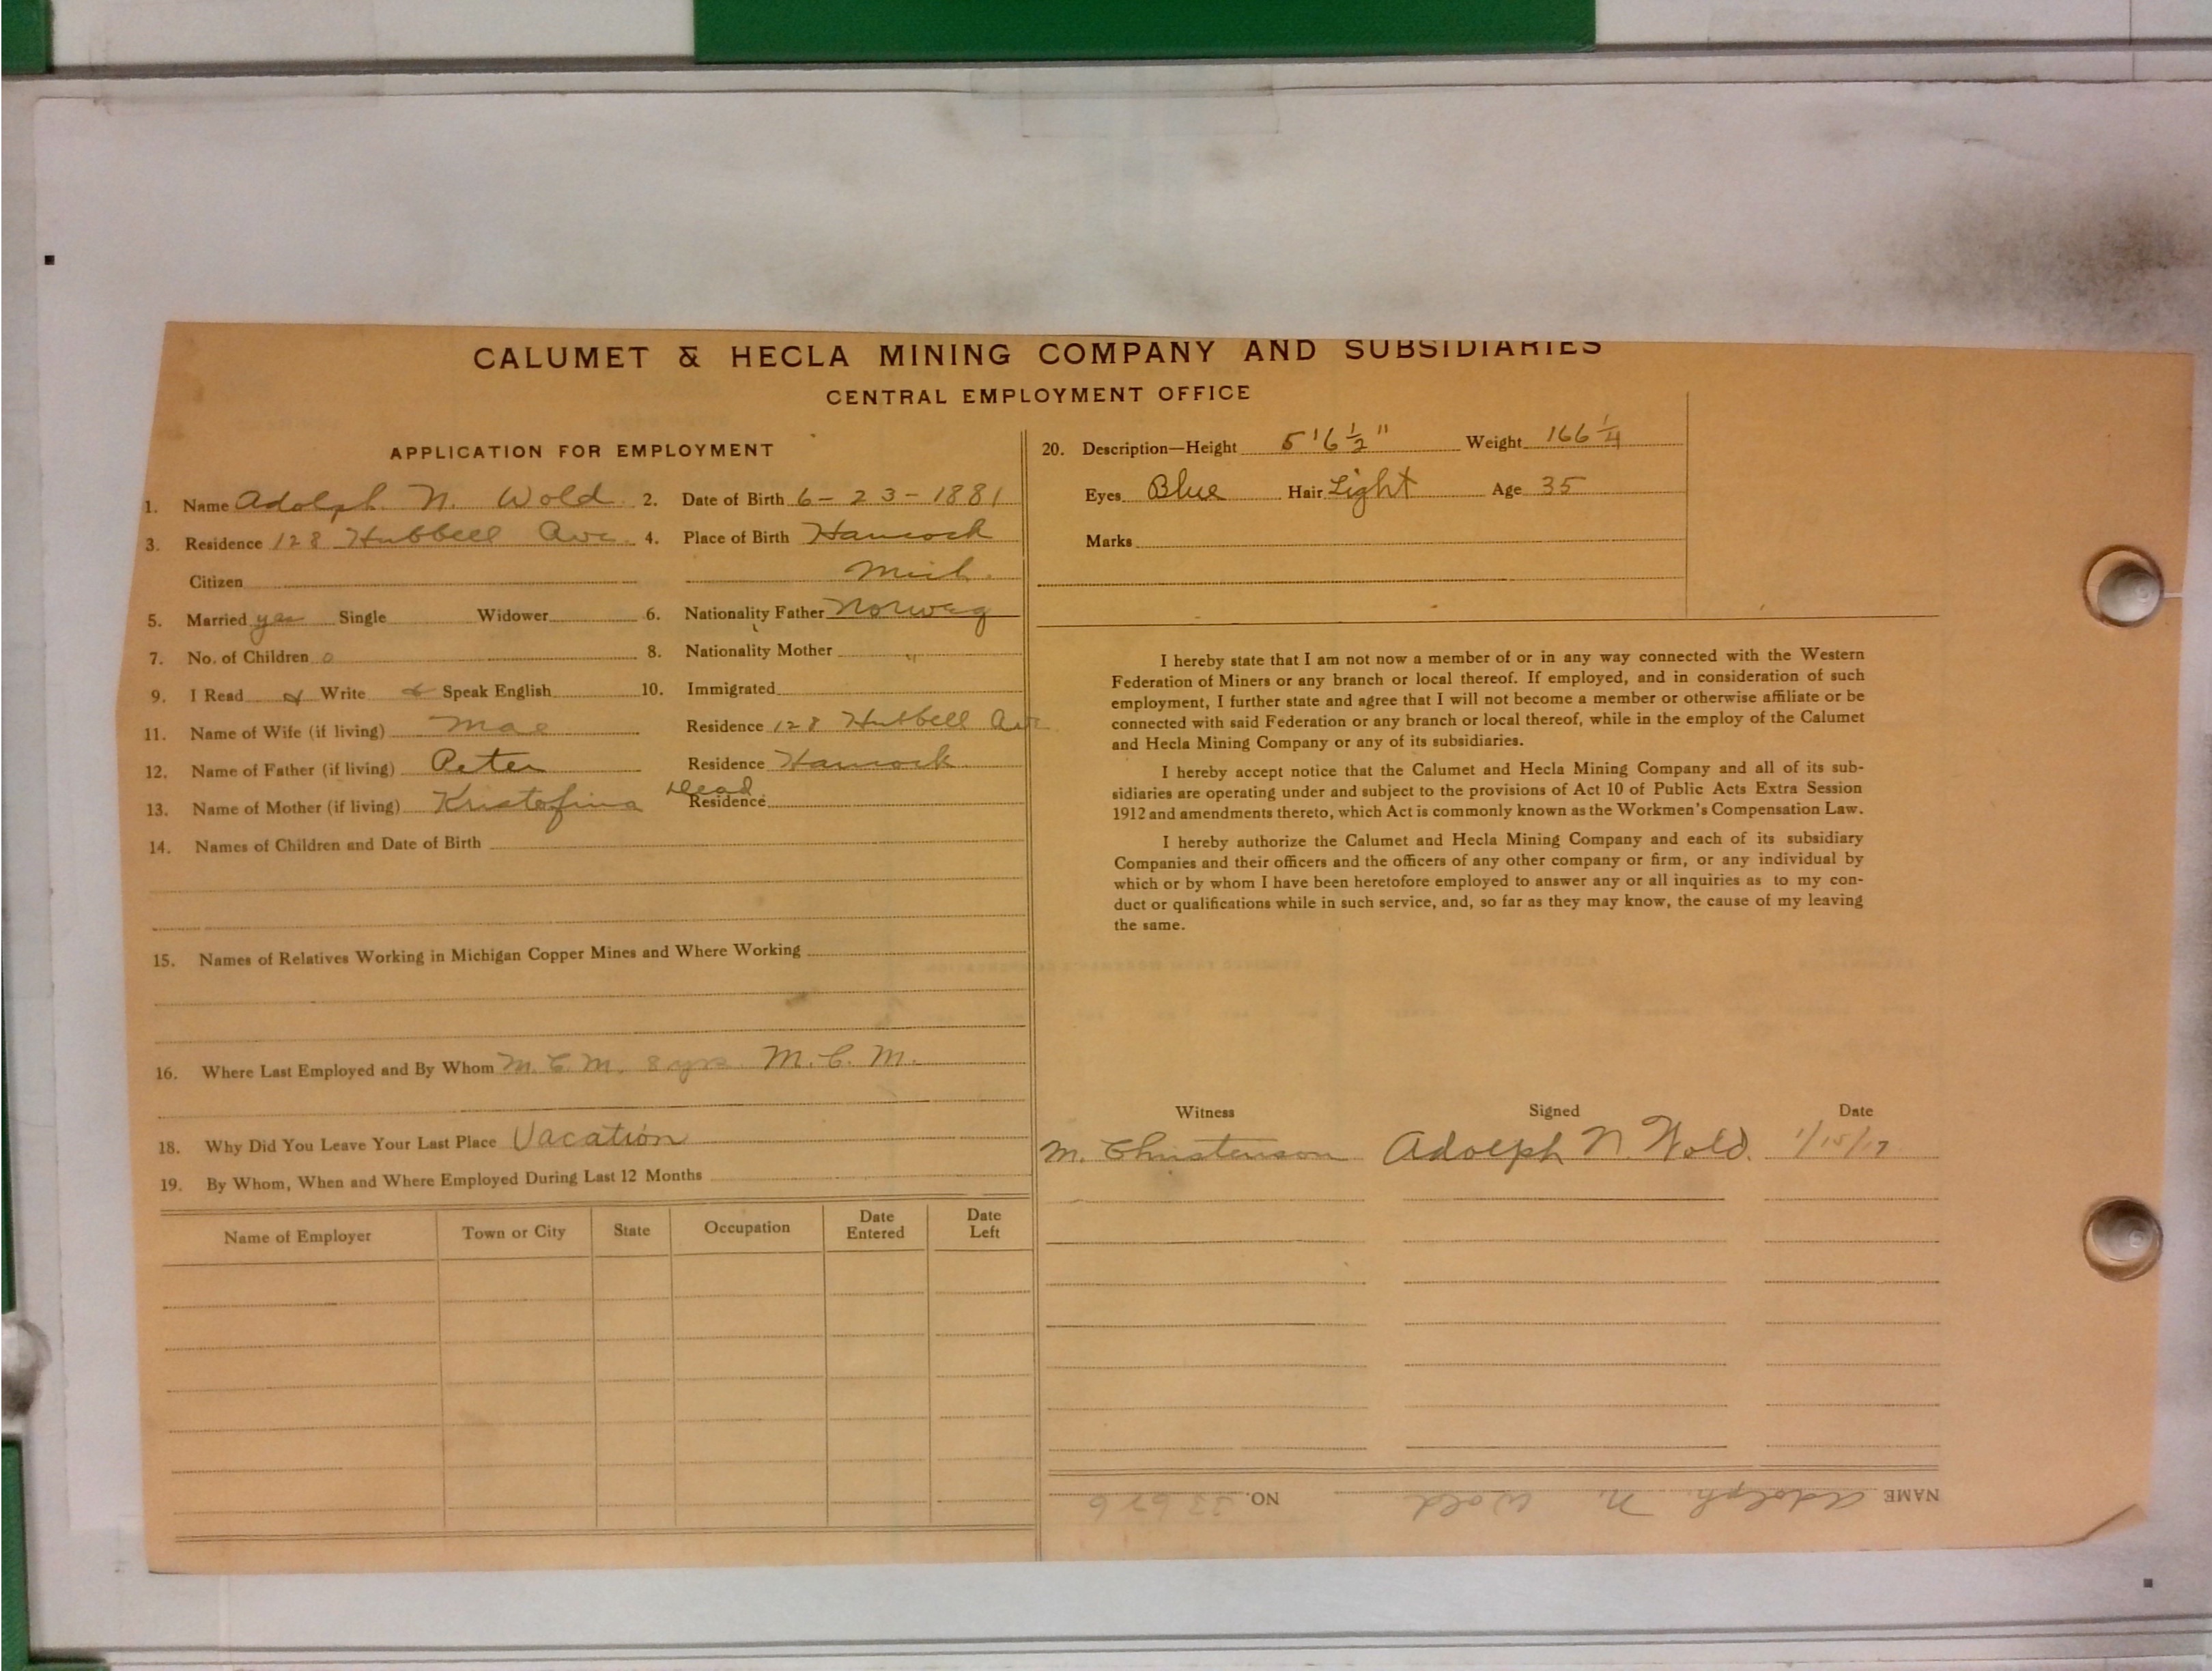 CALUMET & HECLA MINING COMPANY AND SUBSIDIARIES
CENTRAL EMPLOYMENT OFFICE
APPLICATION FOR EMPLOYMENT
1. Name Adolph N. Wold 2. Date of Birth 6-23-1881
3. Residence 128 Hubbell Ave. 4. Place of Birth Hancock
Citizen Mich.
5. Married yes Single Widower 6. Nationality Father Norweg
7. No. of Children 0 8. Nationality Mother "
9. I Read & Write & Speak English 10. Immigrated
11. Name of Wife (if living) Mae Residence 128 Hubbell Ave
12. Name of Father (if living) Peter Residence Hancock
13. Name of Mother (if living) Kristofina Dead Residence
14. Names of Children and Date of Birth
15. Names of Relatives Working in Michigan Copper Mines and Where Working
16. Where Last Employed and By Whom M.C.M. 8 yrs M.C.M.
18. Why Did You Leave Your Last Place Vacation
19. By Whom, When and Where Employed During Last 12 Months
Name of Employer Town or City State Occupation Date Entered Date Left
20. Description—Height 5'6½" Weight 166¼
Eyes Blue Hair Light Age 35
Marks
I hereby state that I am not now a member of or in any way connected with the Western
Federation of Miners or any branch or local thereof. If employed, and in consideration of such
employment, I further state and agree that I will not become a member or otherwise affiliate or be
connected with said Federation or any branch or local thereof, while in the employ of the Calumet
and Hecla Mining Company or any of its subsidiaries.
I hereby accept notice that the Calumet and Hecla Mining Company and all of its sub-
sidiaries are operating under and subject to the provisions of Act 10 of Public Acts Extra Session
1912 and amendments thereto, which Act is commonly known as the Workmen's Compensation Law.
I hereby authorize the Calumet and Hecla Mining Company and each of its subsidiary
Companies and their officers and the officers of any other company or firm, or any individual by
which or by whom I have been heretofore employed to answer any or all inquiries as to my con-
duct or qualifications while in such service, and, so far as they may know, the cause of my leaving
the same.
Witness Signed Date
M. Christenson Adolph N. Wold. 1/15/17
NAME Adolph N. Wold NO.